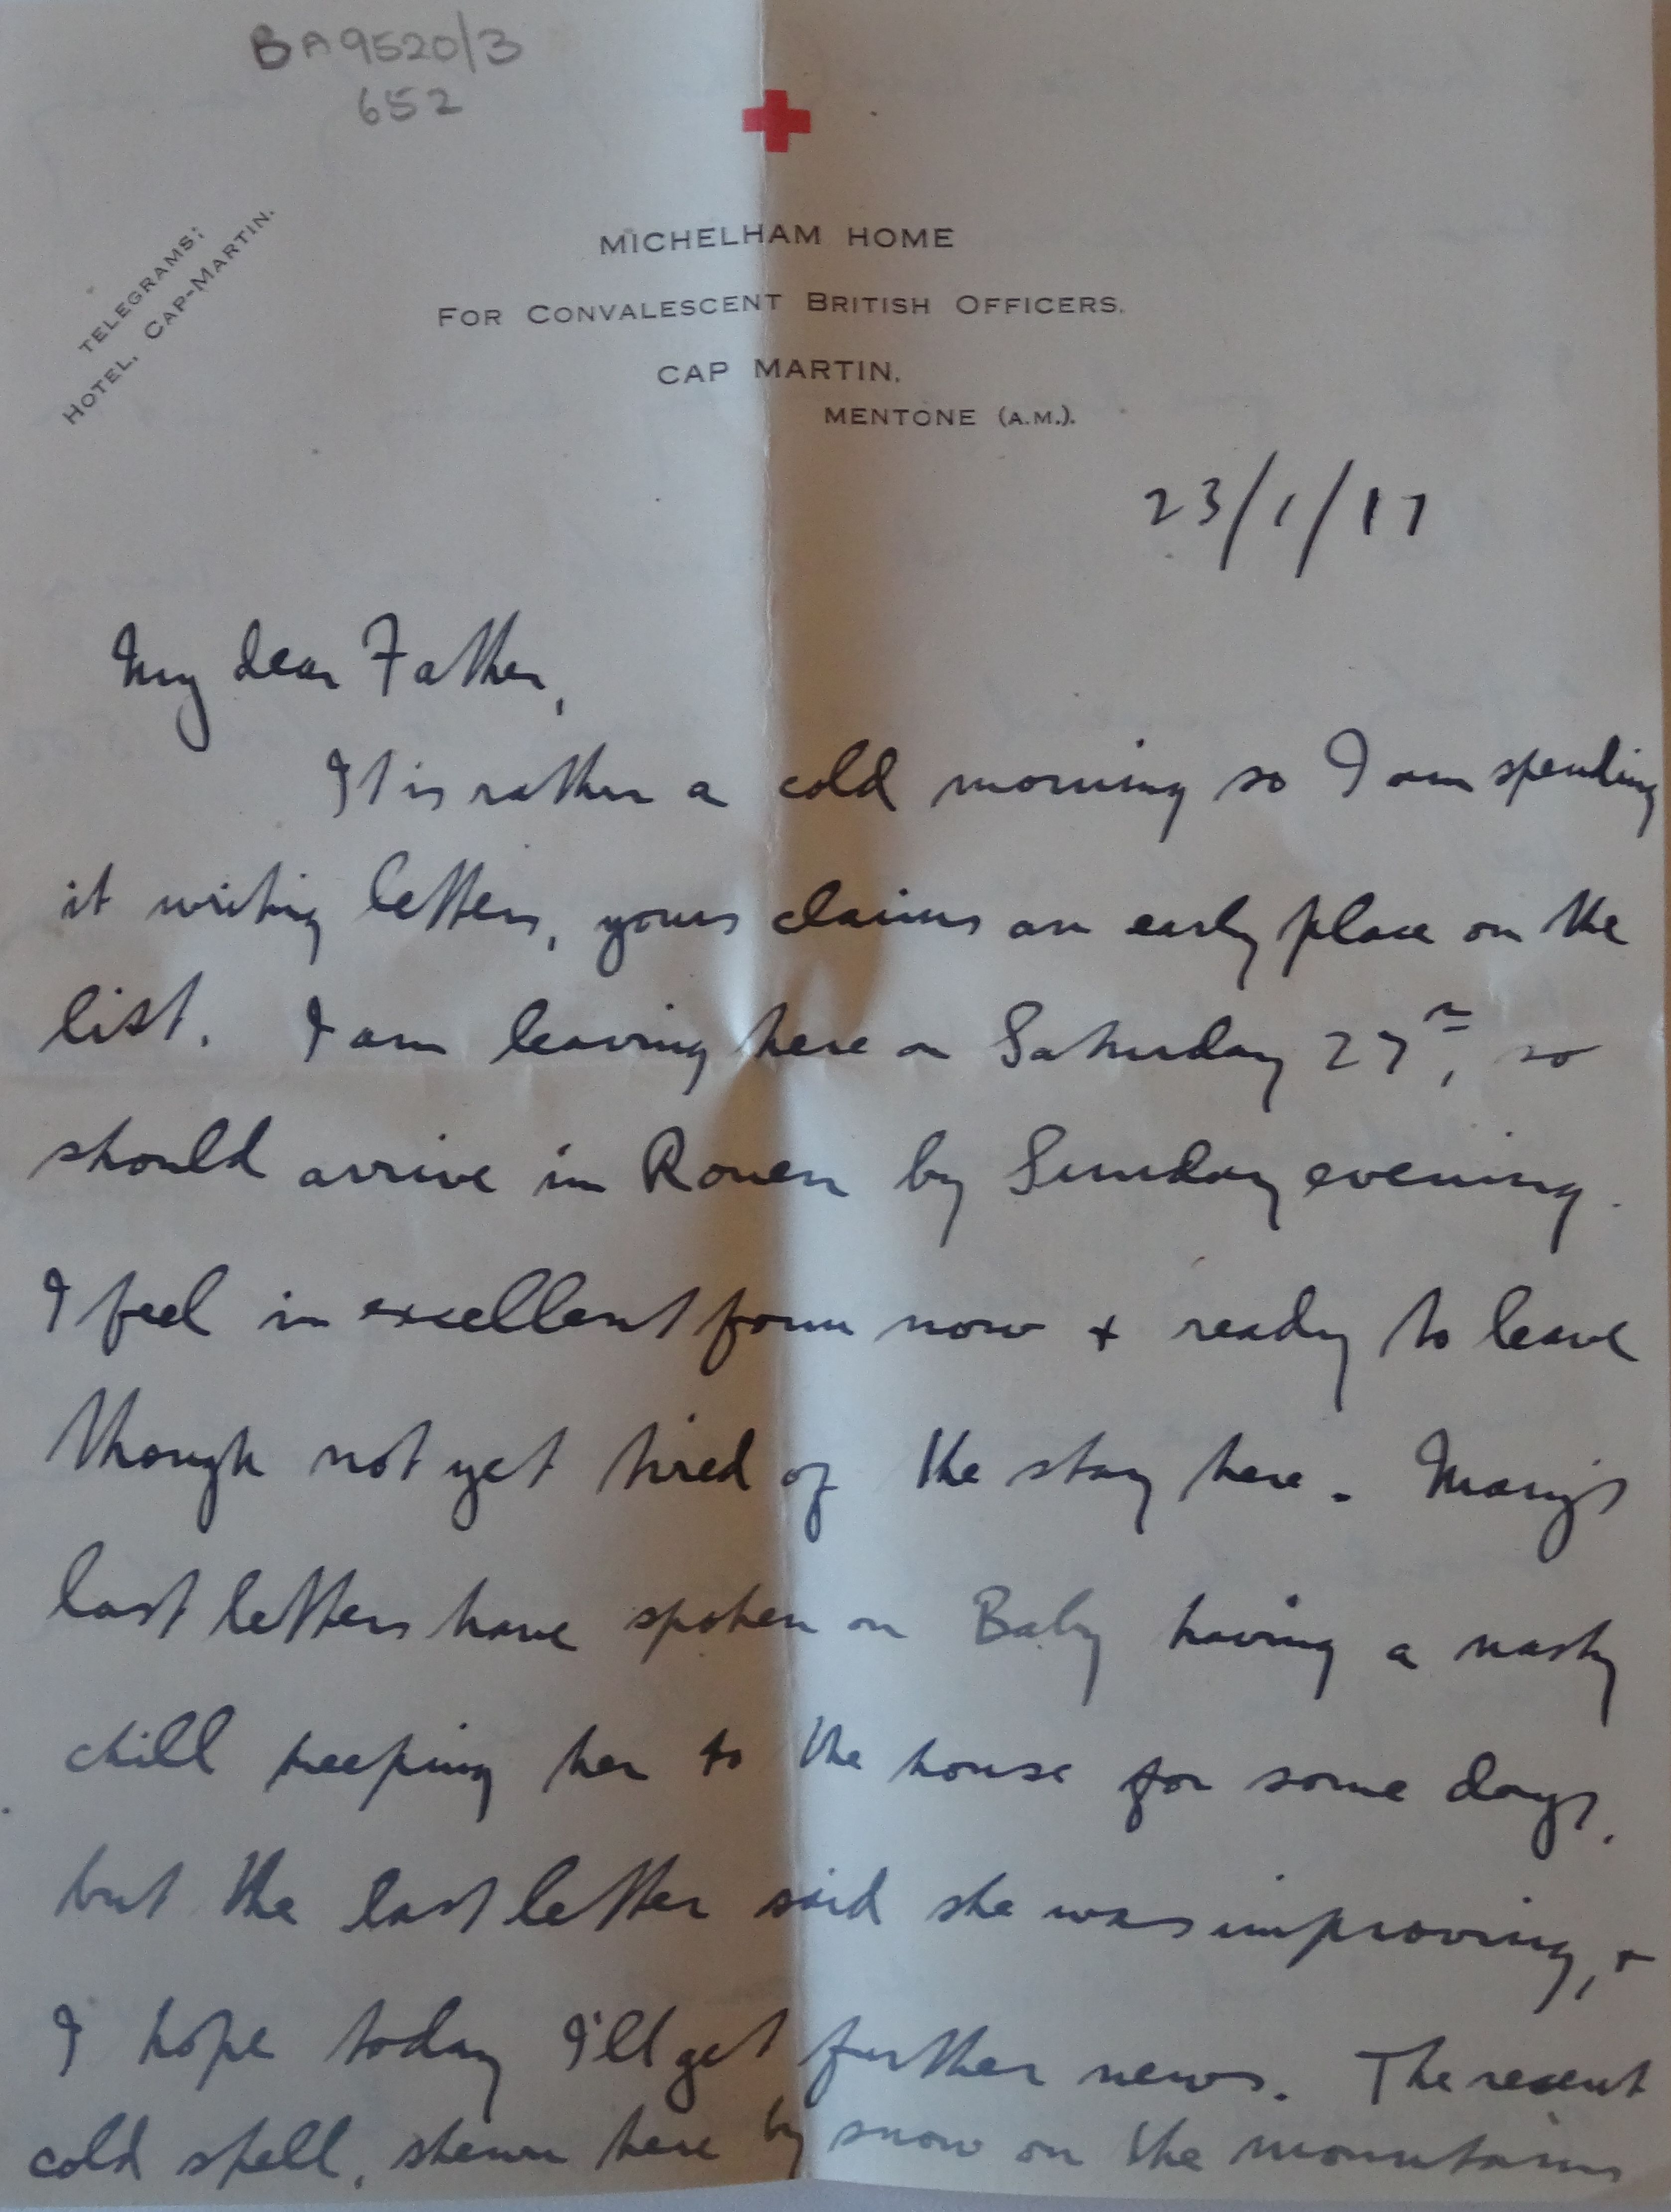 BA9520/3
652
TELEGRAMS:
HOTEL, CAP-MARTIN.
MICHELHAM HOME
FOR CONVALESCENT BRITISH OFFICERS.
CAP MARTIN,
MENTONE (A.M.).
23/1/17
My dear Father,
It is rather a cold morning so I am spending
it writing letters, yours claims an early place on the
list. I am leaving here on Saturday 27th, so
should arrive in Rouen by Sunday evening.
I feel in excellent form now + ready to leave
though not yet tired of the stay here. Mary's
last letters have spoken on Baby having a nasty
chill keeping her to the house for some days,
but the last letter said she was improving, +
I hope today I'll get further news. The recent
cold spell, shewn here by snow on the mountains